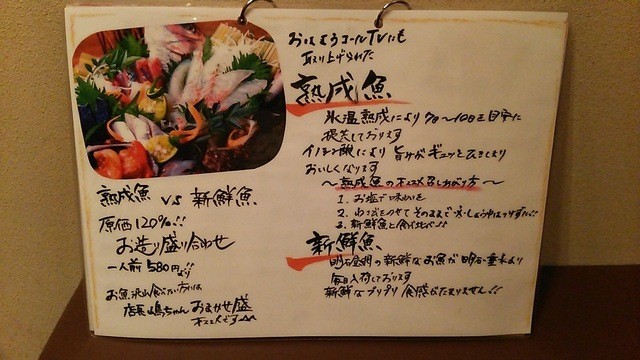 熟成魚 vs 新鮮魚
原価120%!!
お造り盛り合わせ
一人前580円より!!
お魚沢山食べたい方は
店長嶋ちゃん おまかせ盛
オススメです
おはようコールTVにも
取り上げられた
熟成魚
氷温熟成により7日〜10日を目安に
提供しております
イノシン酸により 旨みがギュッとひきしまり
おいしくなります
〜熟成魚のオススメ召し上がり方〜
1. お塩で味わいを
2. わさびをのせてそのままで
3. 新鮮魚と食べ比べ
新鮮魚
新鮮なお魚が明石・垂水より
毎日入荷しております
新鮮なプリプリ食感がたまりません!!